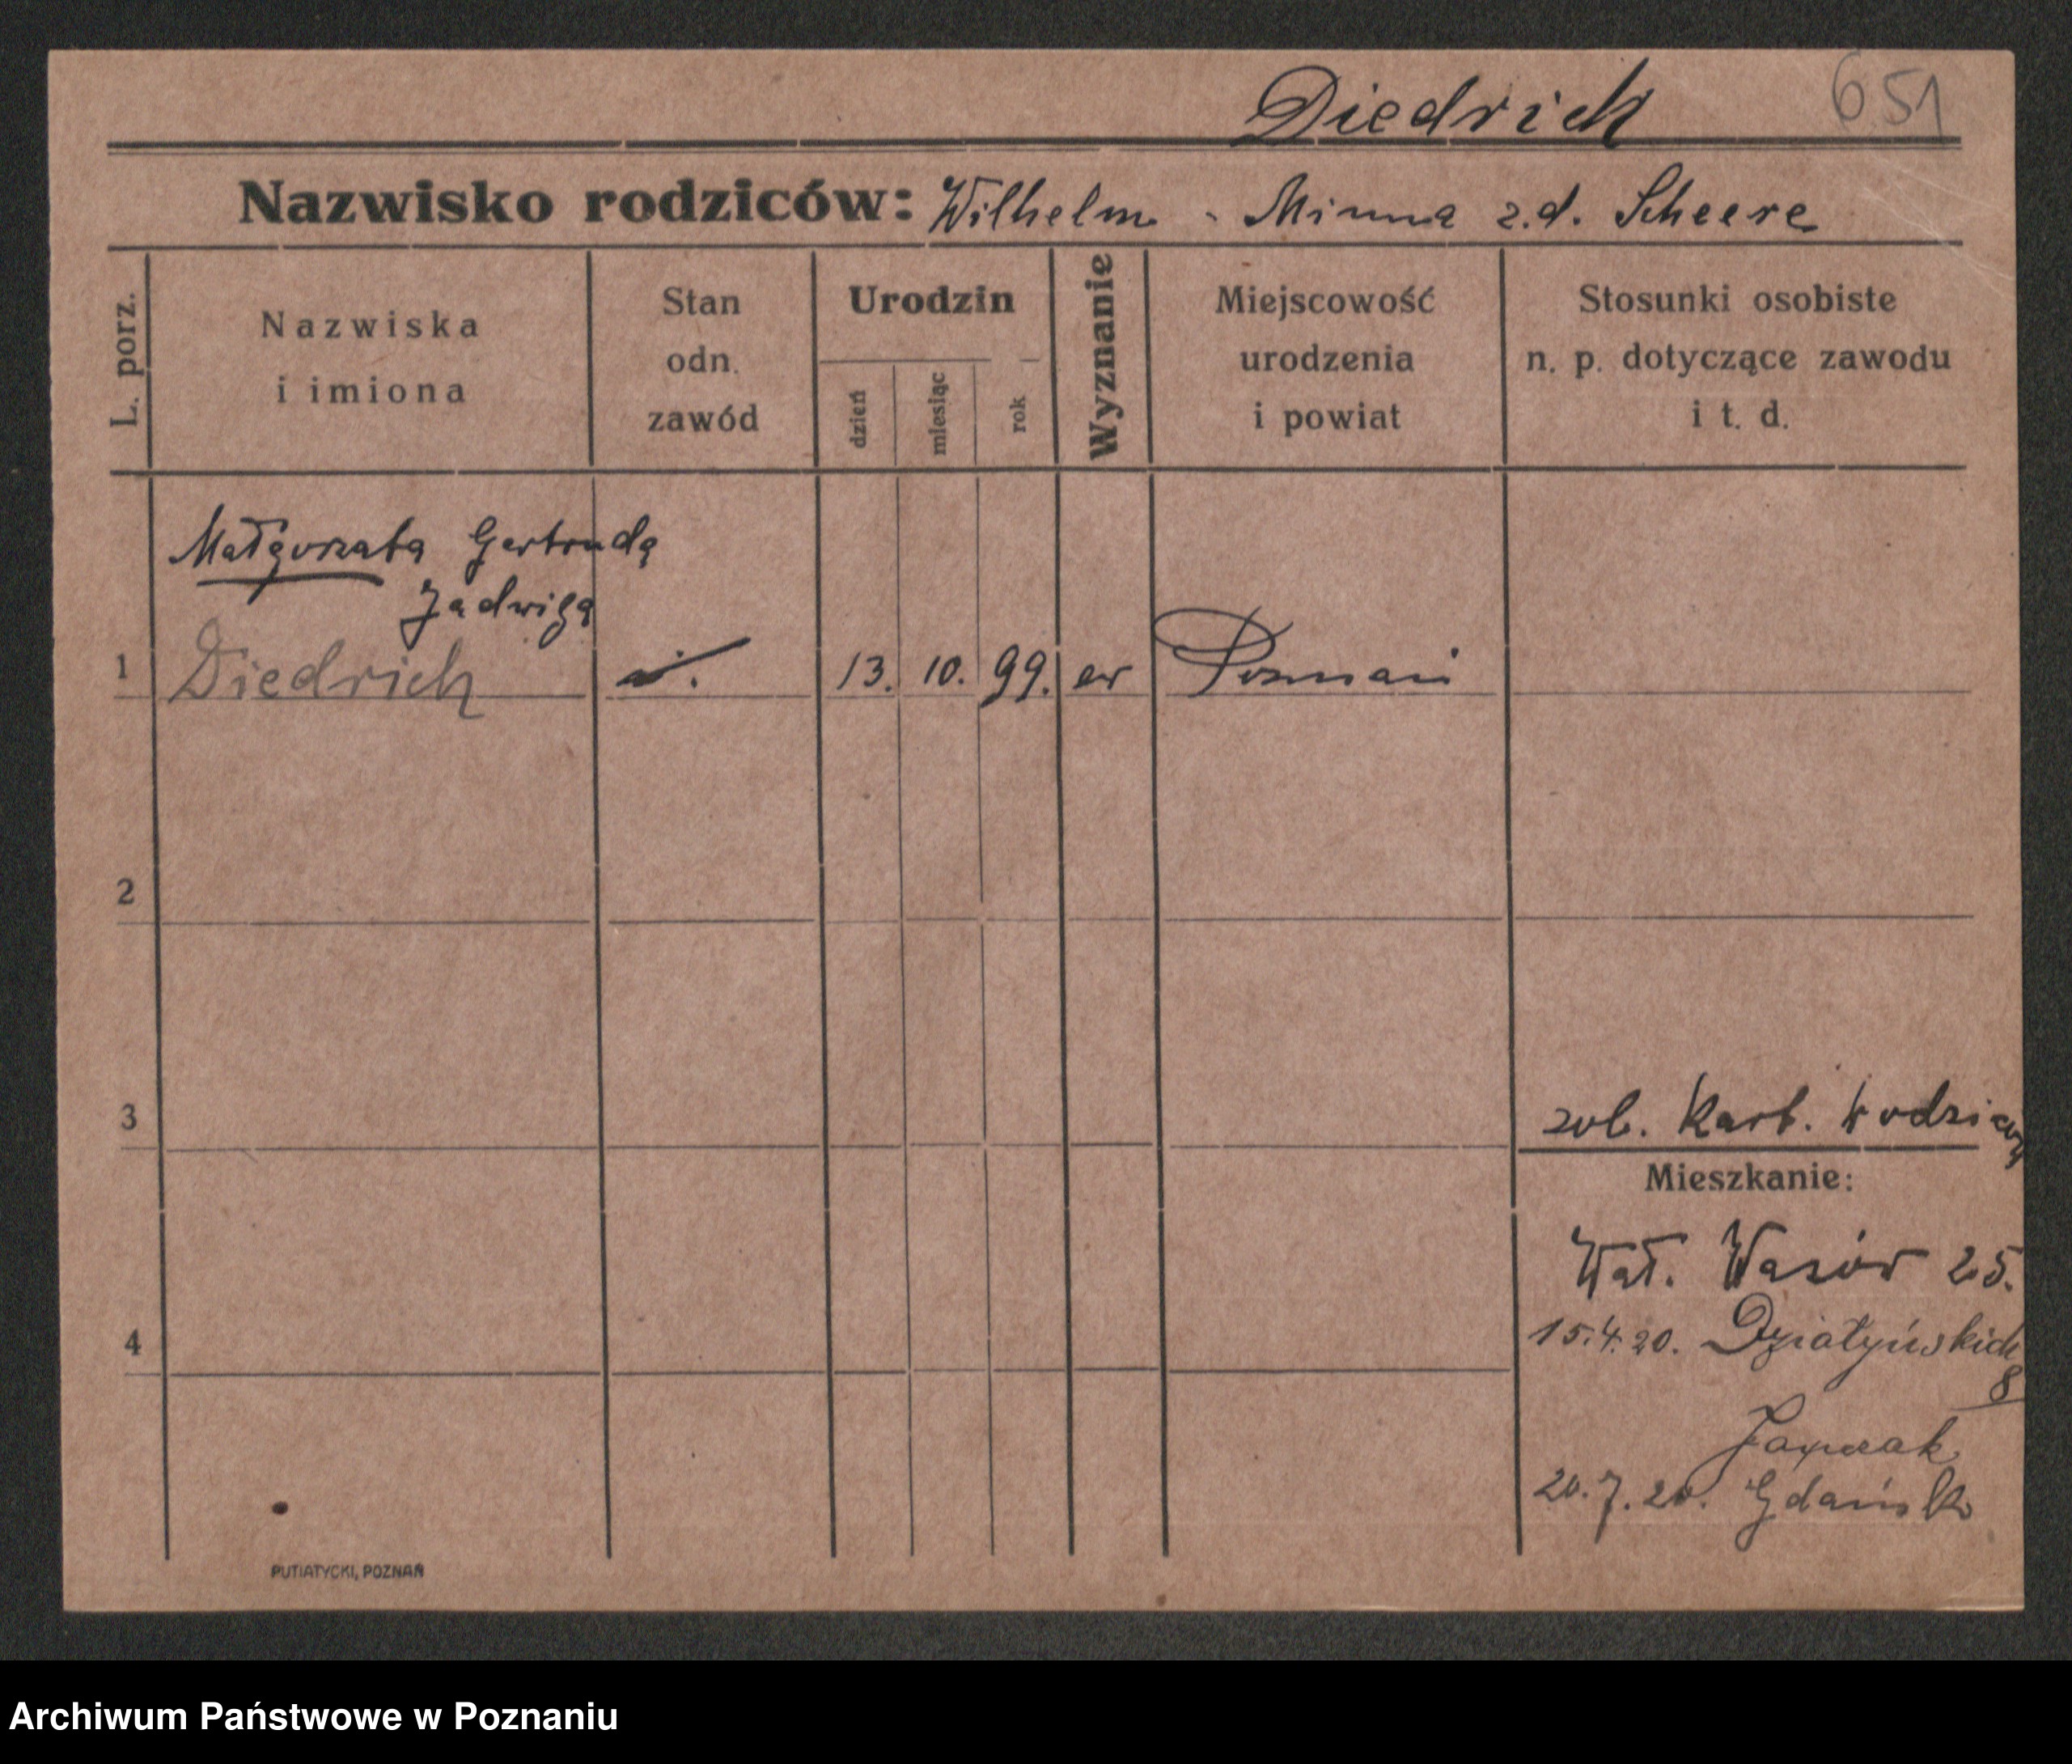 Diedrich 651
Nazwisko rodziców: Wilhelm - Minna z.d. Scheere
L. porz.
Nazwiska
i imiona
Stan
odn.
zawód
Urodzin
dzień
miesiąc
rok
Wyznanie
Miejscowość
urodzenia
i powiat
Stosunki osobiste
n. p. dotyczące zawodu
i t. d.
Małgorzata Gertruda
Jadwiga
1 Diedrich 13. 10. 99. ew Poznań
2
3
zob. Kart. rodziców
Mieszkanie:
Wał. Wazów 25.
15.4.20. Działyńskich
8
4
20.7.20. Gdańsk
PUTIATYCKI, POZNAŃ
Archiwum Państwowe w Poznaniu